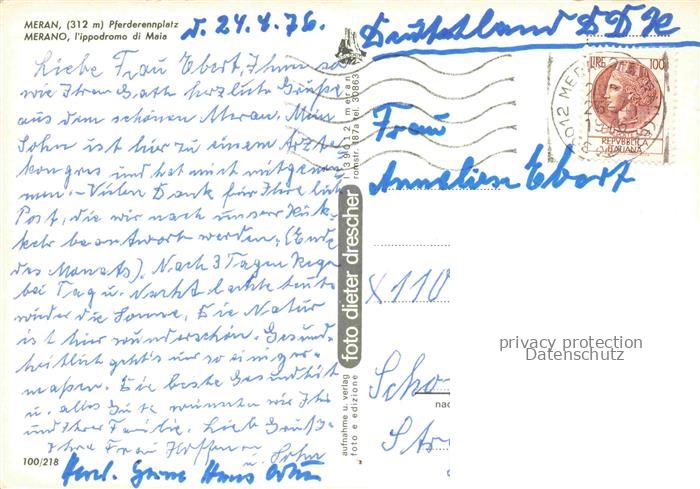 MERAN, (312 m) Pferderennplatz
MERANO, l'ippodromo di Maia
d. 24.8.76.
Liebe Frau Ebert, Ihnen so
wie Ihrem Gatten herzliche Grüße
aus dem schönen Meran. Mein
Sohn ist hier zu einem Ärzte
kongres und hat mich mitgenom
men. – Vielen Dank für Ihre lieb
Post, die wir nach unser Rük-
kehr beantworten werden, (Ende
des Monats). Nach 3 Tagen Rege
bei Tag u. Nacht lachte heute
wieder die Sonne, Die Natur
ist hier wunderschön. Gesund-
heitlich geht's mir so einiger-
maßen. Die beste Gesundheit
u. alles Gute wünschen wir Ihr
und Ihrer Familie. Liebe Grüße
Ihre Frau Hoffmann
u. Sohn
Herzl. Grüße Hans
100/218
Deutschland DDR
LIRE 100
REPVBBLICA
ITALIANA
39012
Frau
Anneliese Ebert
X 110
Scho
Str
nac
I 39012 meran
romstr. 187a tel. 30863
foto dieter drescher
aufnahme u. verlag
foto e edizione
privacy protection
Datenschutz